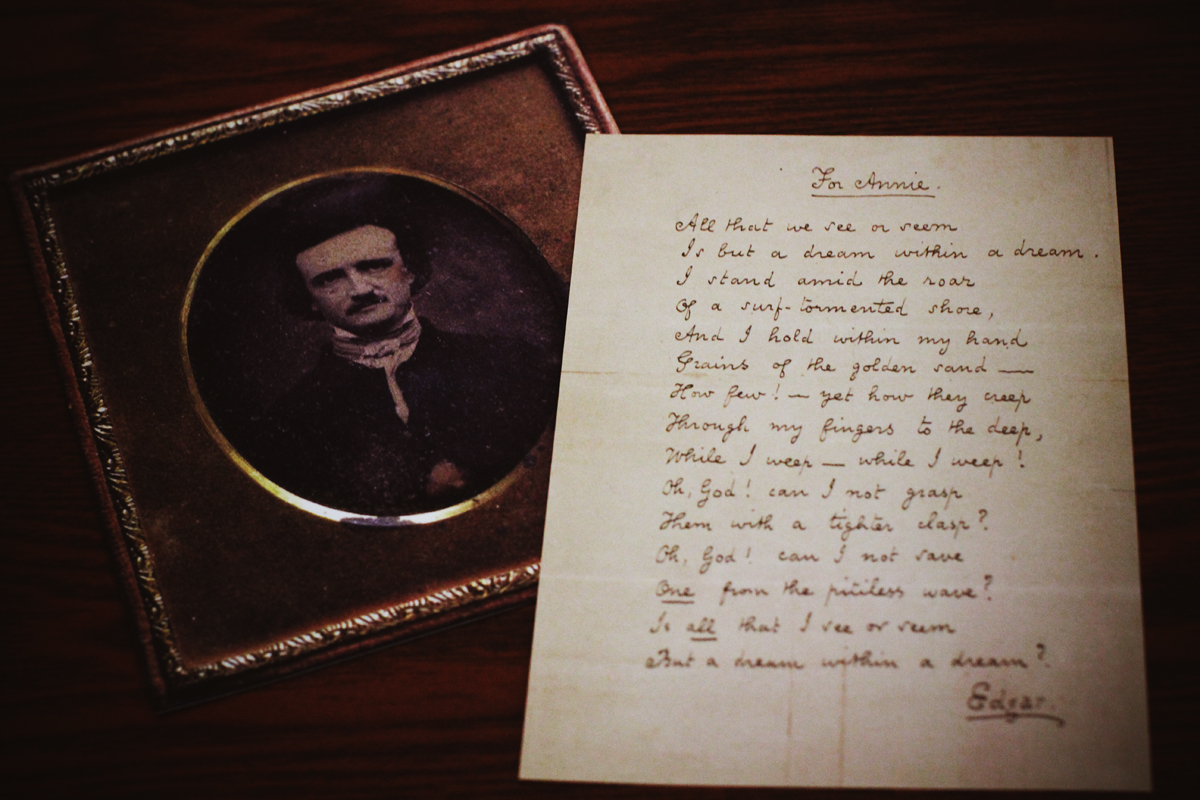 For Annie.
All that we see or seem
Is but a dream within a dream.
I stand amid the roar
Of a surf-tormented shore,
And I hold within my hand
Grains of the golden sand —
How few! — yet how they creep
Through my fingers to the deep,
While I weep — while I weep!
Oh, God! can I not grasp
Them with a tighter clasp?
Oh, God! can I not save
One from the pitiless wave?
Is all that I see or seem
But a dream within a dream?
Edgar.